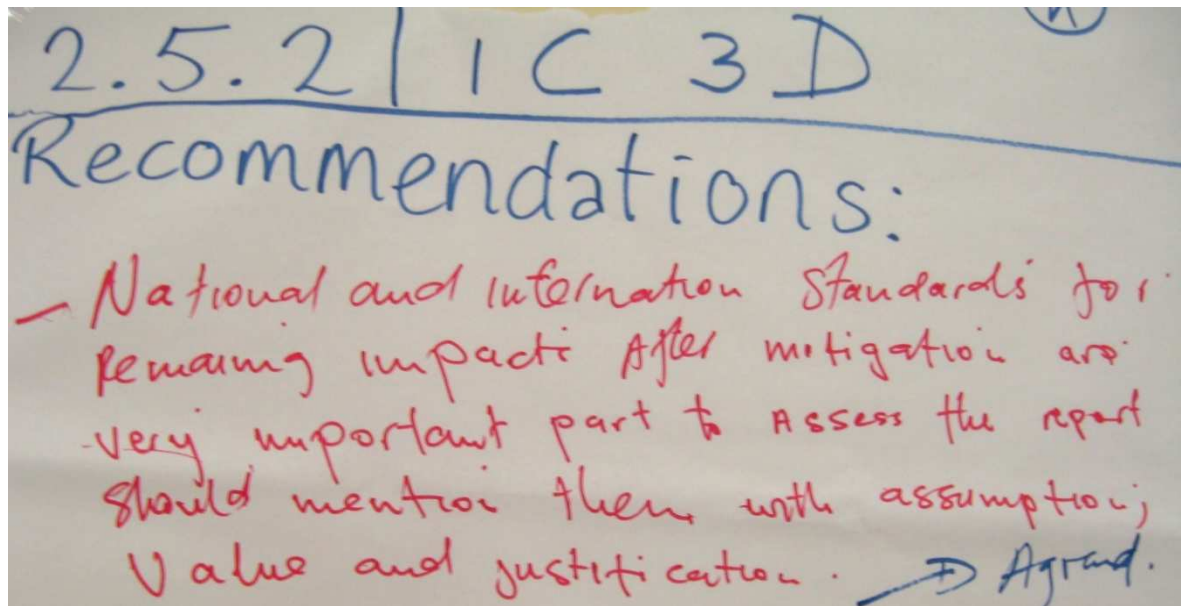 2.5.2 | 1 C 3 D
Recommendations:
- National and internation Standards for
remaining impacts After mitigation are
very important part to Assess the report
should mention them with assumption,
Value and justification. → Agreed.